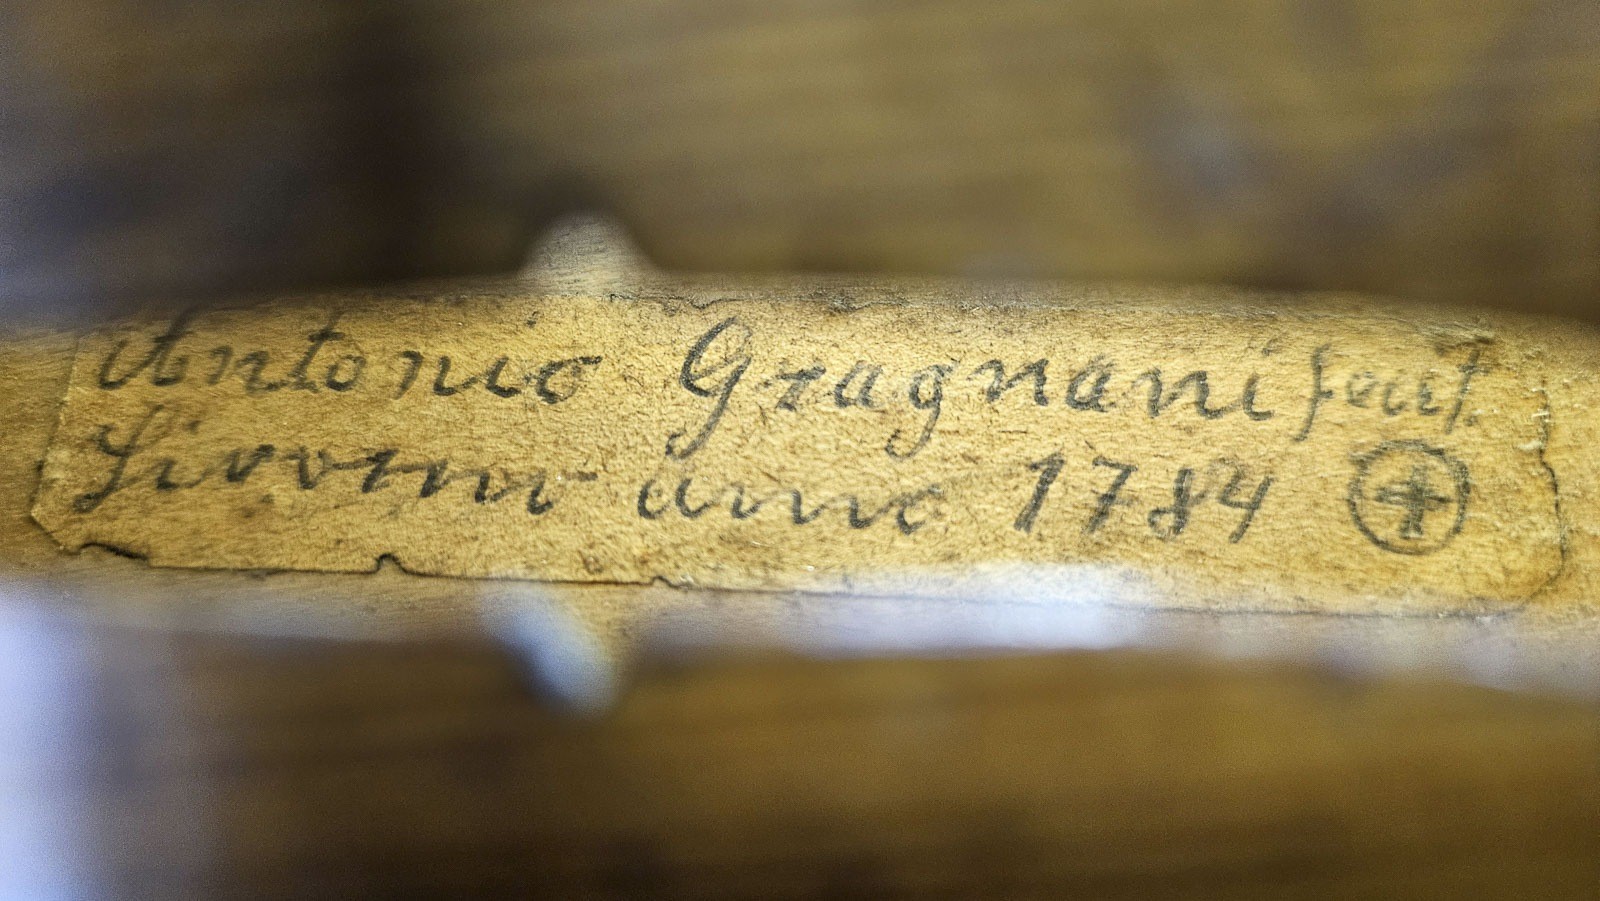 Antonio Gragnani fecit.
Livorno anno 1784